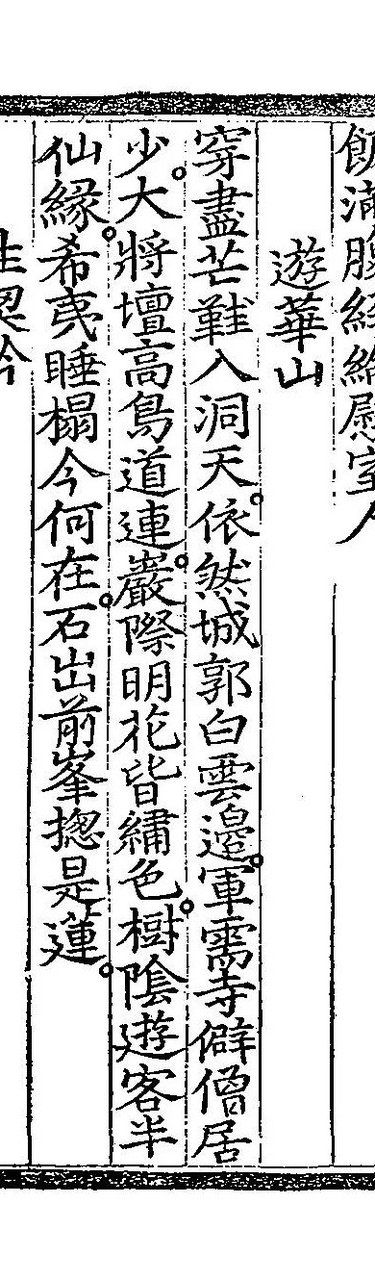 滿腹經綸慰室人
遊華山
穿盡芒鞋入洞天。依然城郭白雲邊。軍需寺僻僧居
少。大將壇高鳥道連。巖際明花皆繡色。樹陰遊客半
仙緣。希夷睡榻今何在。石出前峯揔是蓮。